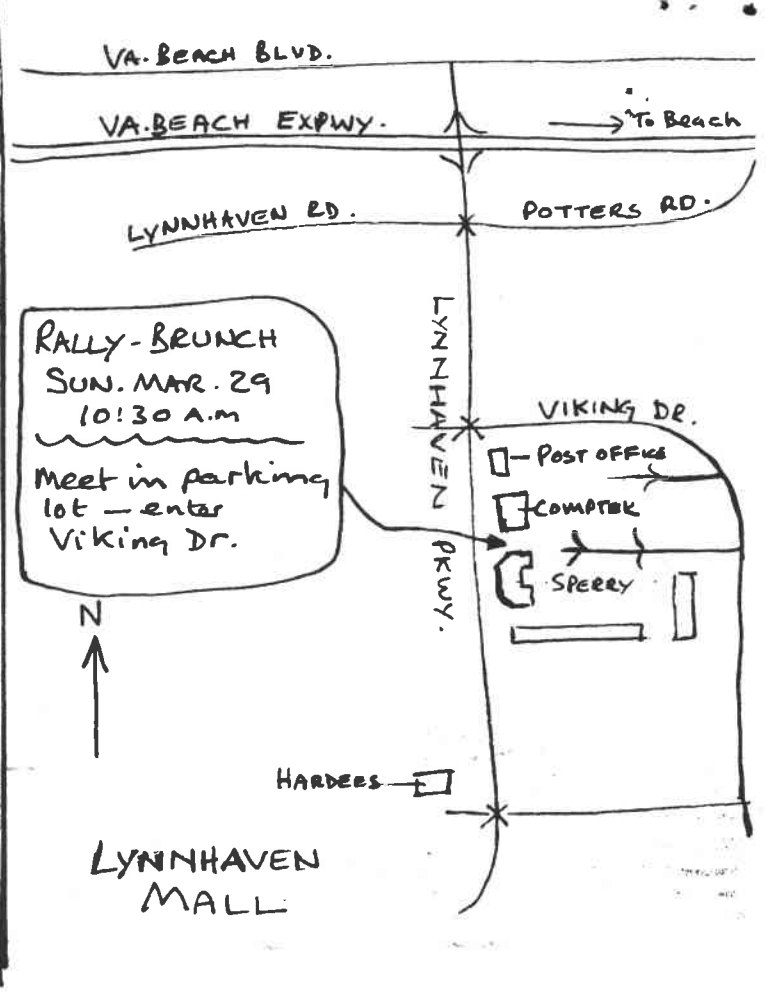 VA. BEACH BLVD.
VA. BEACH EXPWY.
To Beach
LYNNHAVEN RD.
POTTERS RD.
LYNNHAVEN PKWY.
RALLY-BRUNCH
SUN. MAR. 29
10:30 A.M
Meet in parking
lot — enter
Viking Dr.
VIKING DR.
POST OFFICE
COMPTEK
SPERRY
N
HARDEES
LYNNHAVEN
MALL